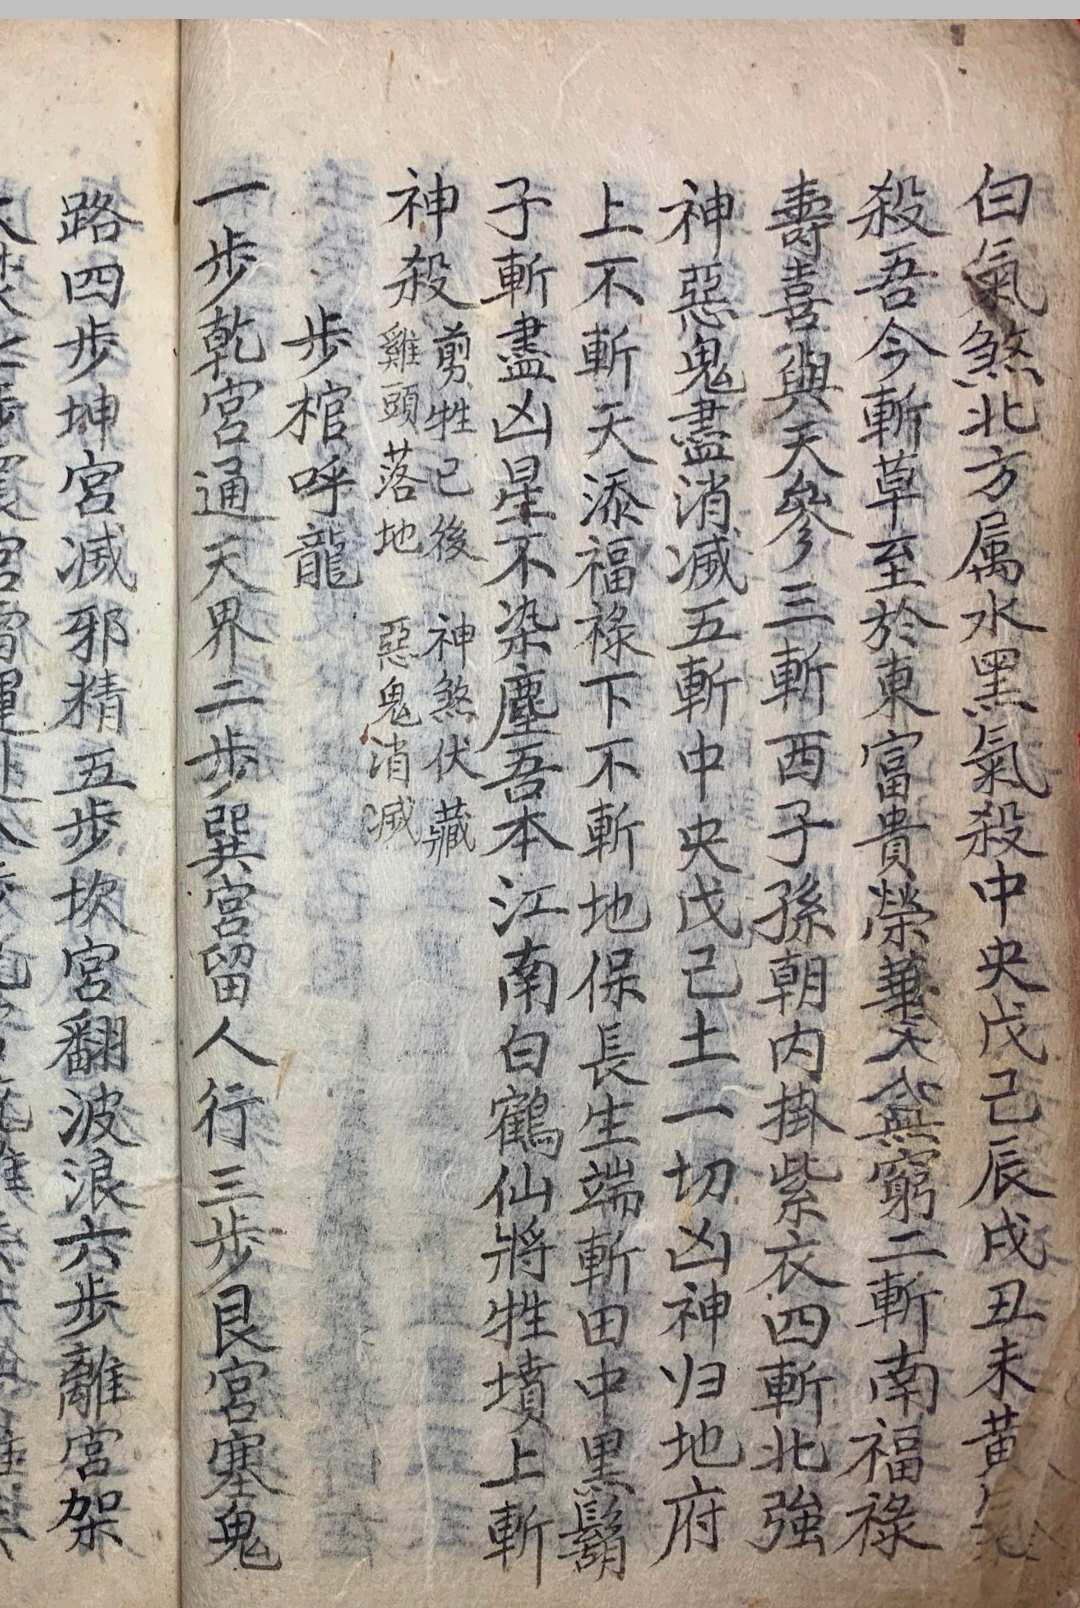 白氣煞北方属水黑氣殺中央戊己辰戌丑未黃氣
殺吾今斬草至於東富貴榮華人無窮二斬南福祿
壽喜與天參三斬酉子孫朝内掛紫衣四斬北強
神惡鬼盡消滅五斬中央戊己土一切凶神归地府
上不斬天添福祿下不斬地保長生端斬田中黑鬍
子斬盡凶星不染塵吾本江南白鶴仙將牲墳上斬
神殺
剪牲已後 神煞伏藏
雞頭落地 惡鬼消滅
步棺呼龍
一步乾宮通天界二步巽宮留人行三步艮宮塞鬼
路四步坤宮滅邪精五步坎宮翻波浪六步離宮架